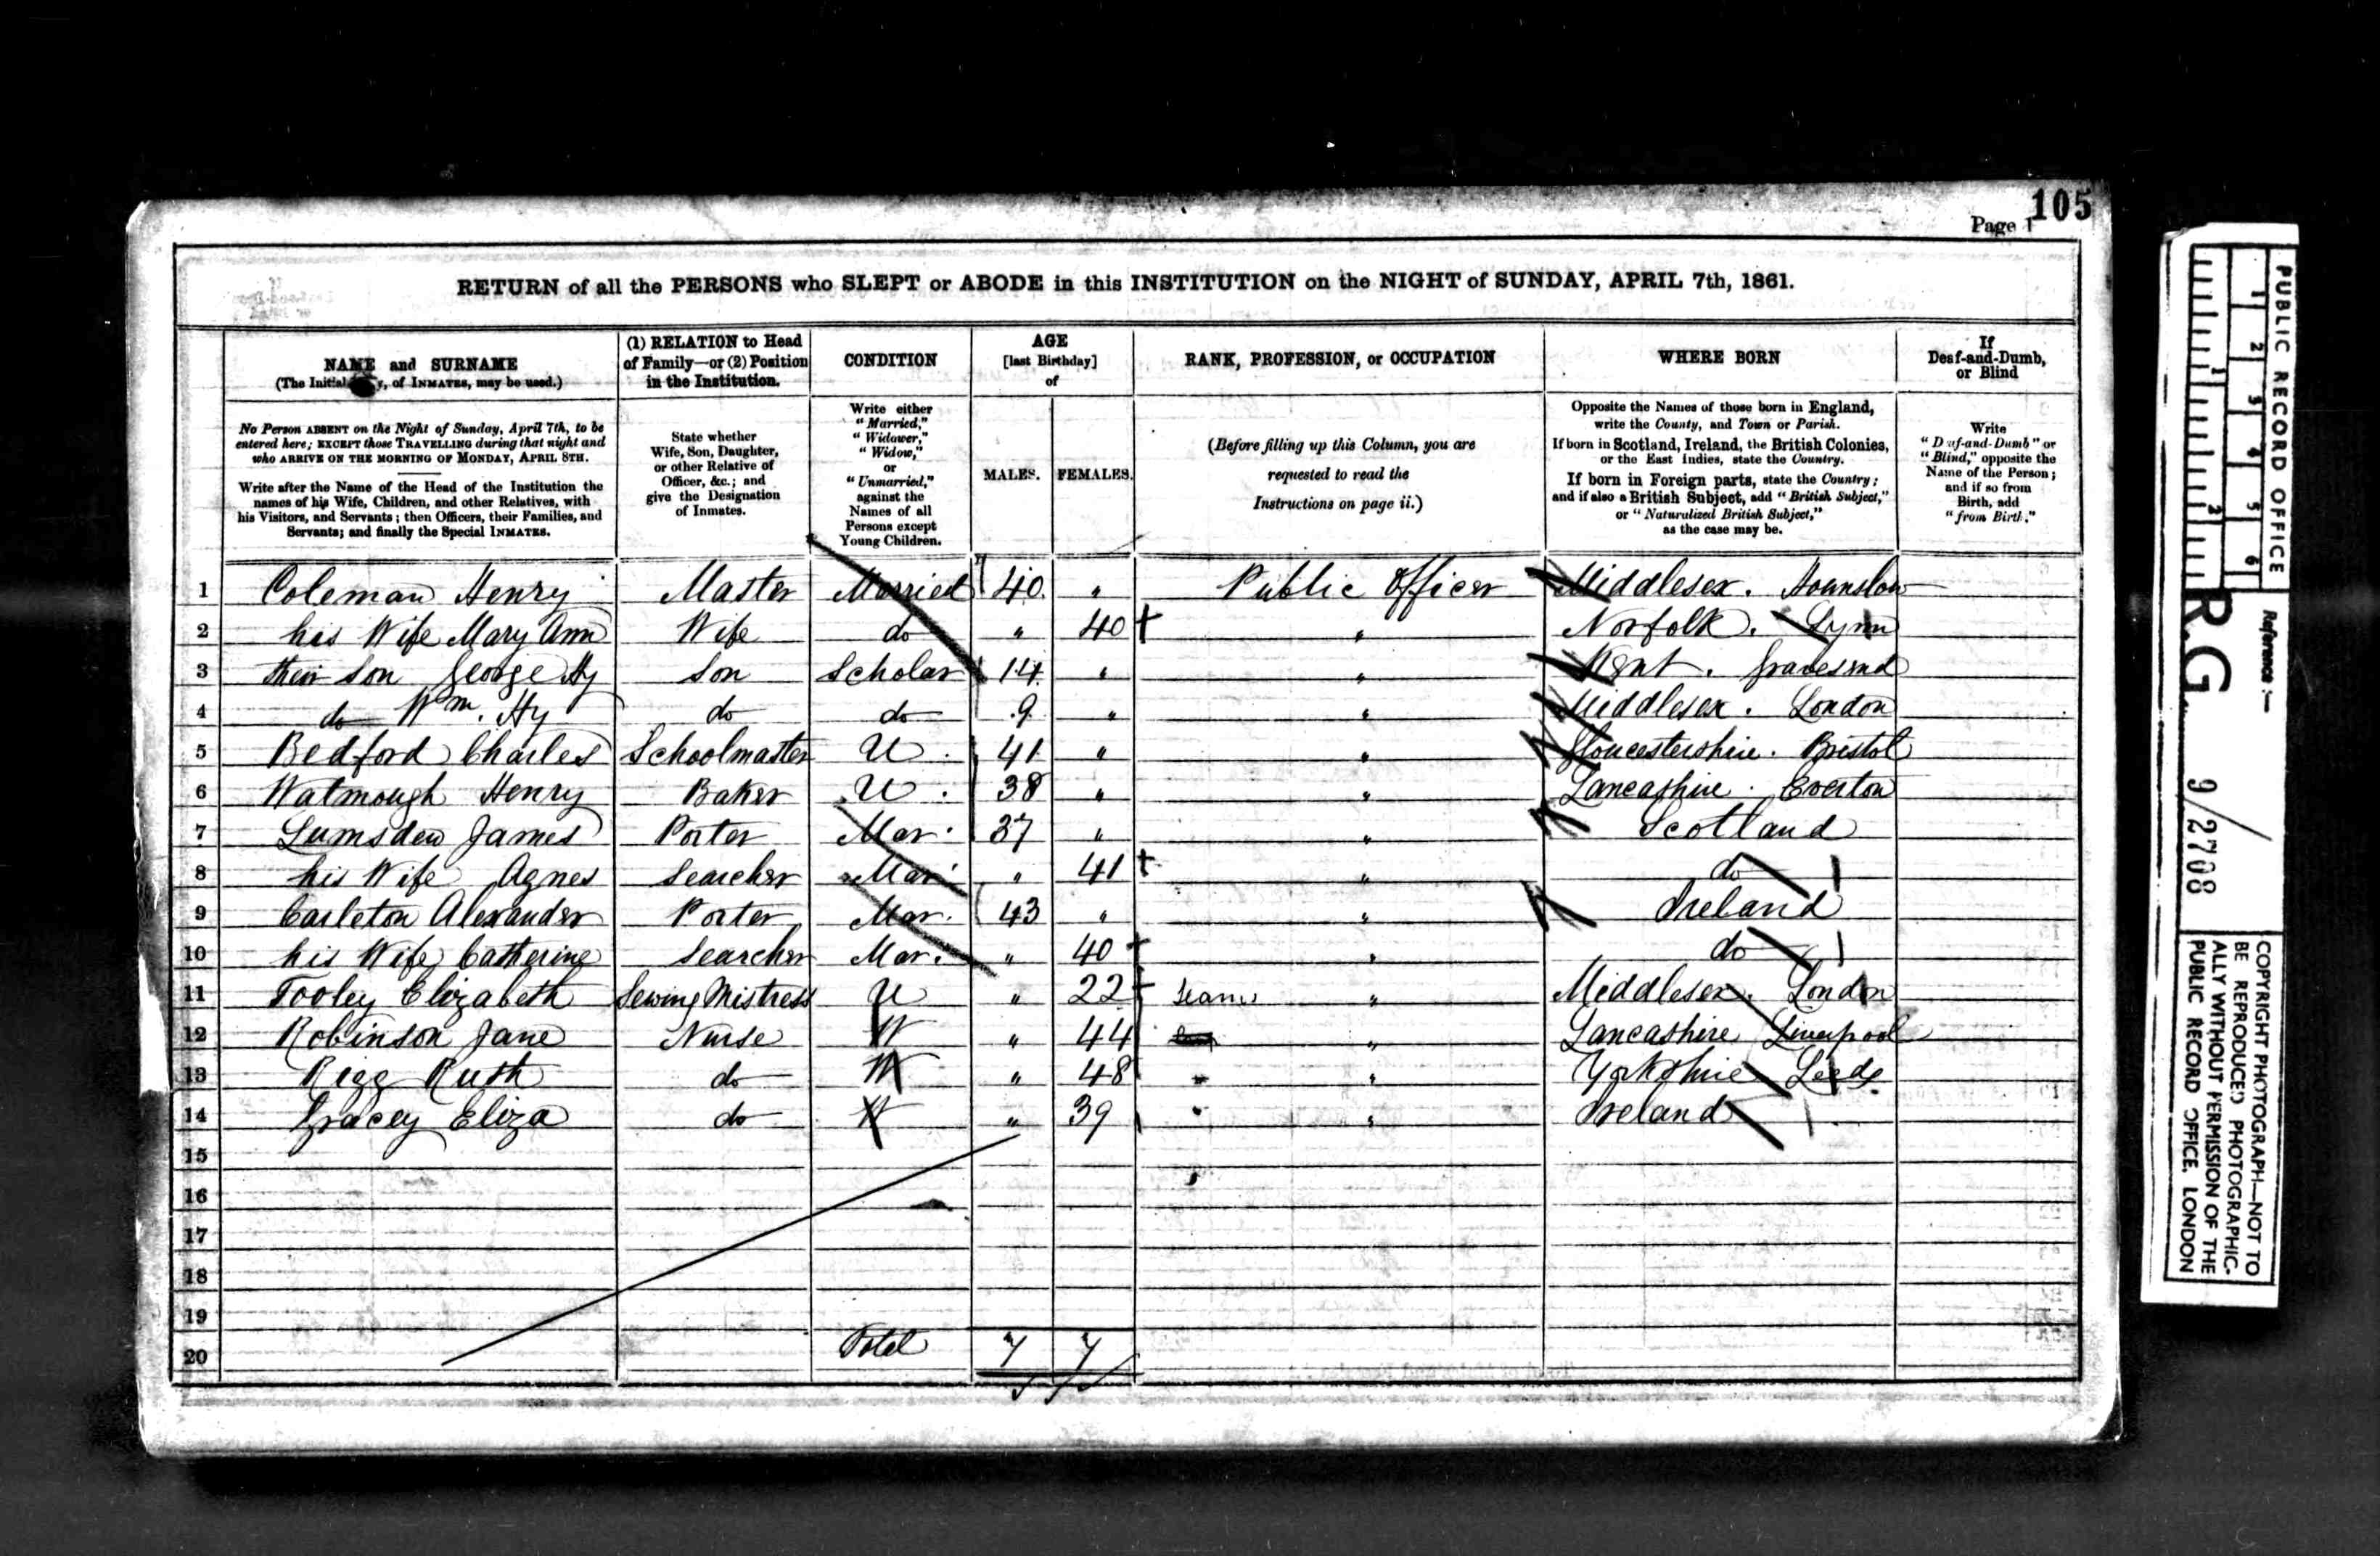 105
Page 1
RETURN of all the PERSONS who SLEPT or ABODE in this INSTITUTION on the NIGHT of SUNDAY, APRIL 7th, 1861.
NAME and SURNAME
(The Initials of INMATES, may be used.)
No Person ABSENT on the Night of Sunday, April 7th, to be
entered here; EXCEPT those TRAVELLING during that night and
who ARRIVE ON THE MORNING OF MONDAY, APRIL 8TH.
Write after the Name of the Head of the Institution the
names of his Wife, Children, and other Relatives, with
his Visitors, and Servants; then Officers, their Families, and
Servants; and finally the Special INMATES.
(1) RELATION to Head
of Family—or (2) Position
in the Institution.
State whether
Wife, Son, Daughter,
or other Relative of
Officer, &c.; and
give the Designation
of Inmates.
CONDITION
Write either
"Married,"
"Widower,"
"Widow,"
or
"Unmarried,"
against the
Names of all
Persons except
Young Children.
AGE
[last Birthday]
of
MALES. FEMALES.
RANK, PROFESSION, or OCCUPATION
(Before filling up this Column, you are
requested to read the
Instructions on page ii.)
WHERE BORN
Opposite the Names of those born in England,
write the County, and Town or Parish.
If born in Scotland, Ireland, the British Colonies,
or the East Indies, state the Country.
If born in Foreign parts, state the Country;
and if also a British Subject, add "British Subject,"
or "Naturalized British Subject,"
as the case may be.
If
Deaf-and-Dumb,
or Blind
Write
"Deaf-and-Dumb" or
"Blind," opposite the
Name of the Person;
and if so from
Birth, add
"from Birth."
1 Coleman Henry Master Married 40 " Public Officer Middlesex. Hounslow
2 his Wife Mary Ann Wife do " 40 " Norfolk. Lynn
3 their son George Hy Son Scholar 14 " " Kent. Gravesend
4 do Wm. Hy do do 9 " " Middlesex. London
5 Bedford Charles Schoolmaster U 41 " " Gloucestershire. Bristol
6 Watmough Henry Baker U 38 " " Lancashire. Everton
7 Lumsden James Porter Mar. 37 " " Scotland
8 his Wife Agnes Searcher Mar. " 41 " do
9 Carleton Alexander Porter Mar. 43 " " Ireland
10 his Wife Catherine Searcher Mar. " 40 " do
11 Tooley Elizabeth Sewing Mistress U " 22 " Middlesex. London
12 Robinson Jane Nurse W " 44 " Lancashire Liverpool
13 Rigg Ruth do W " 48 " " Yorkshire Leeds
14 Gracey Eliza do W " 39 " " Ireland
15
16
17
18
19
20 Total 7 7
PUBLIC RECORD OFFICE
1 2 3 4 5 6
1 2
Reference :—
R.G. 9/2708
COPYRIGHT PHOTOGRAPH—NOT TO
BE REPRODUCED PHOTOGRAPHIC-
ALLY WITHOUT PERMISSION OF THE
PUBLIC RECORD OFFICE, LONDON